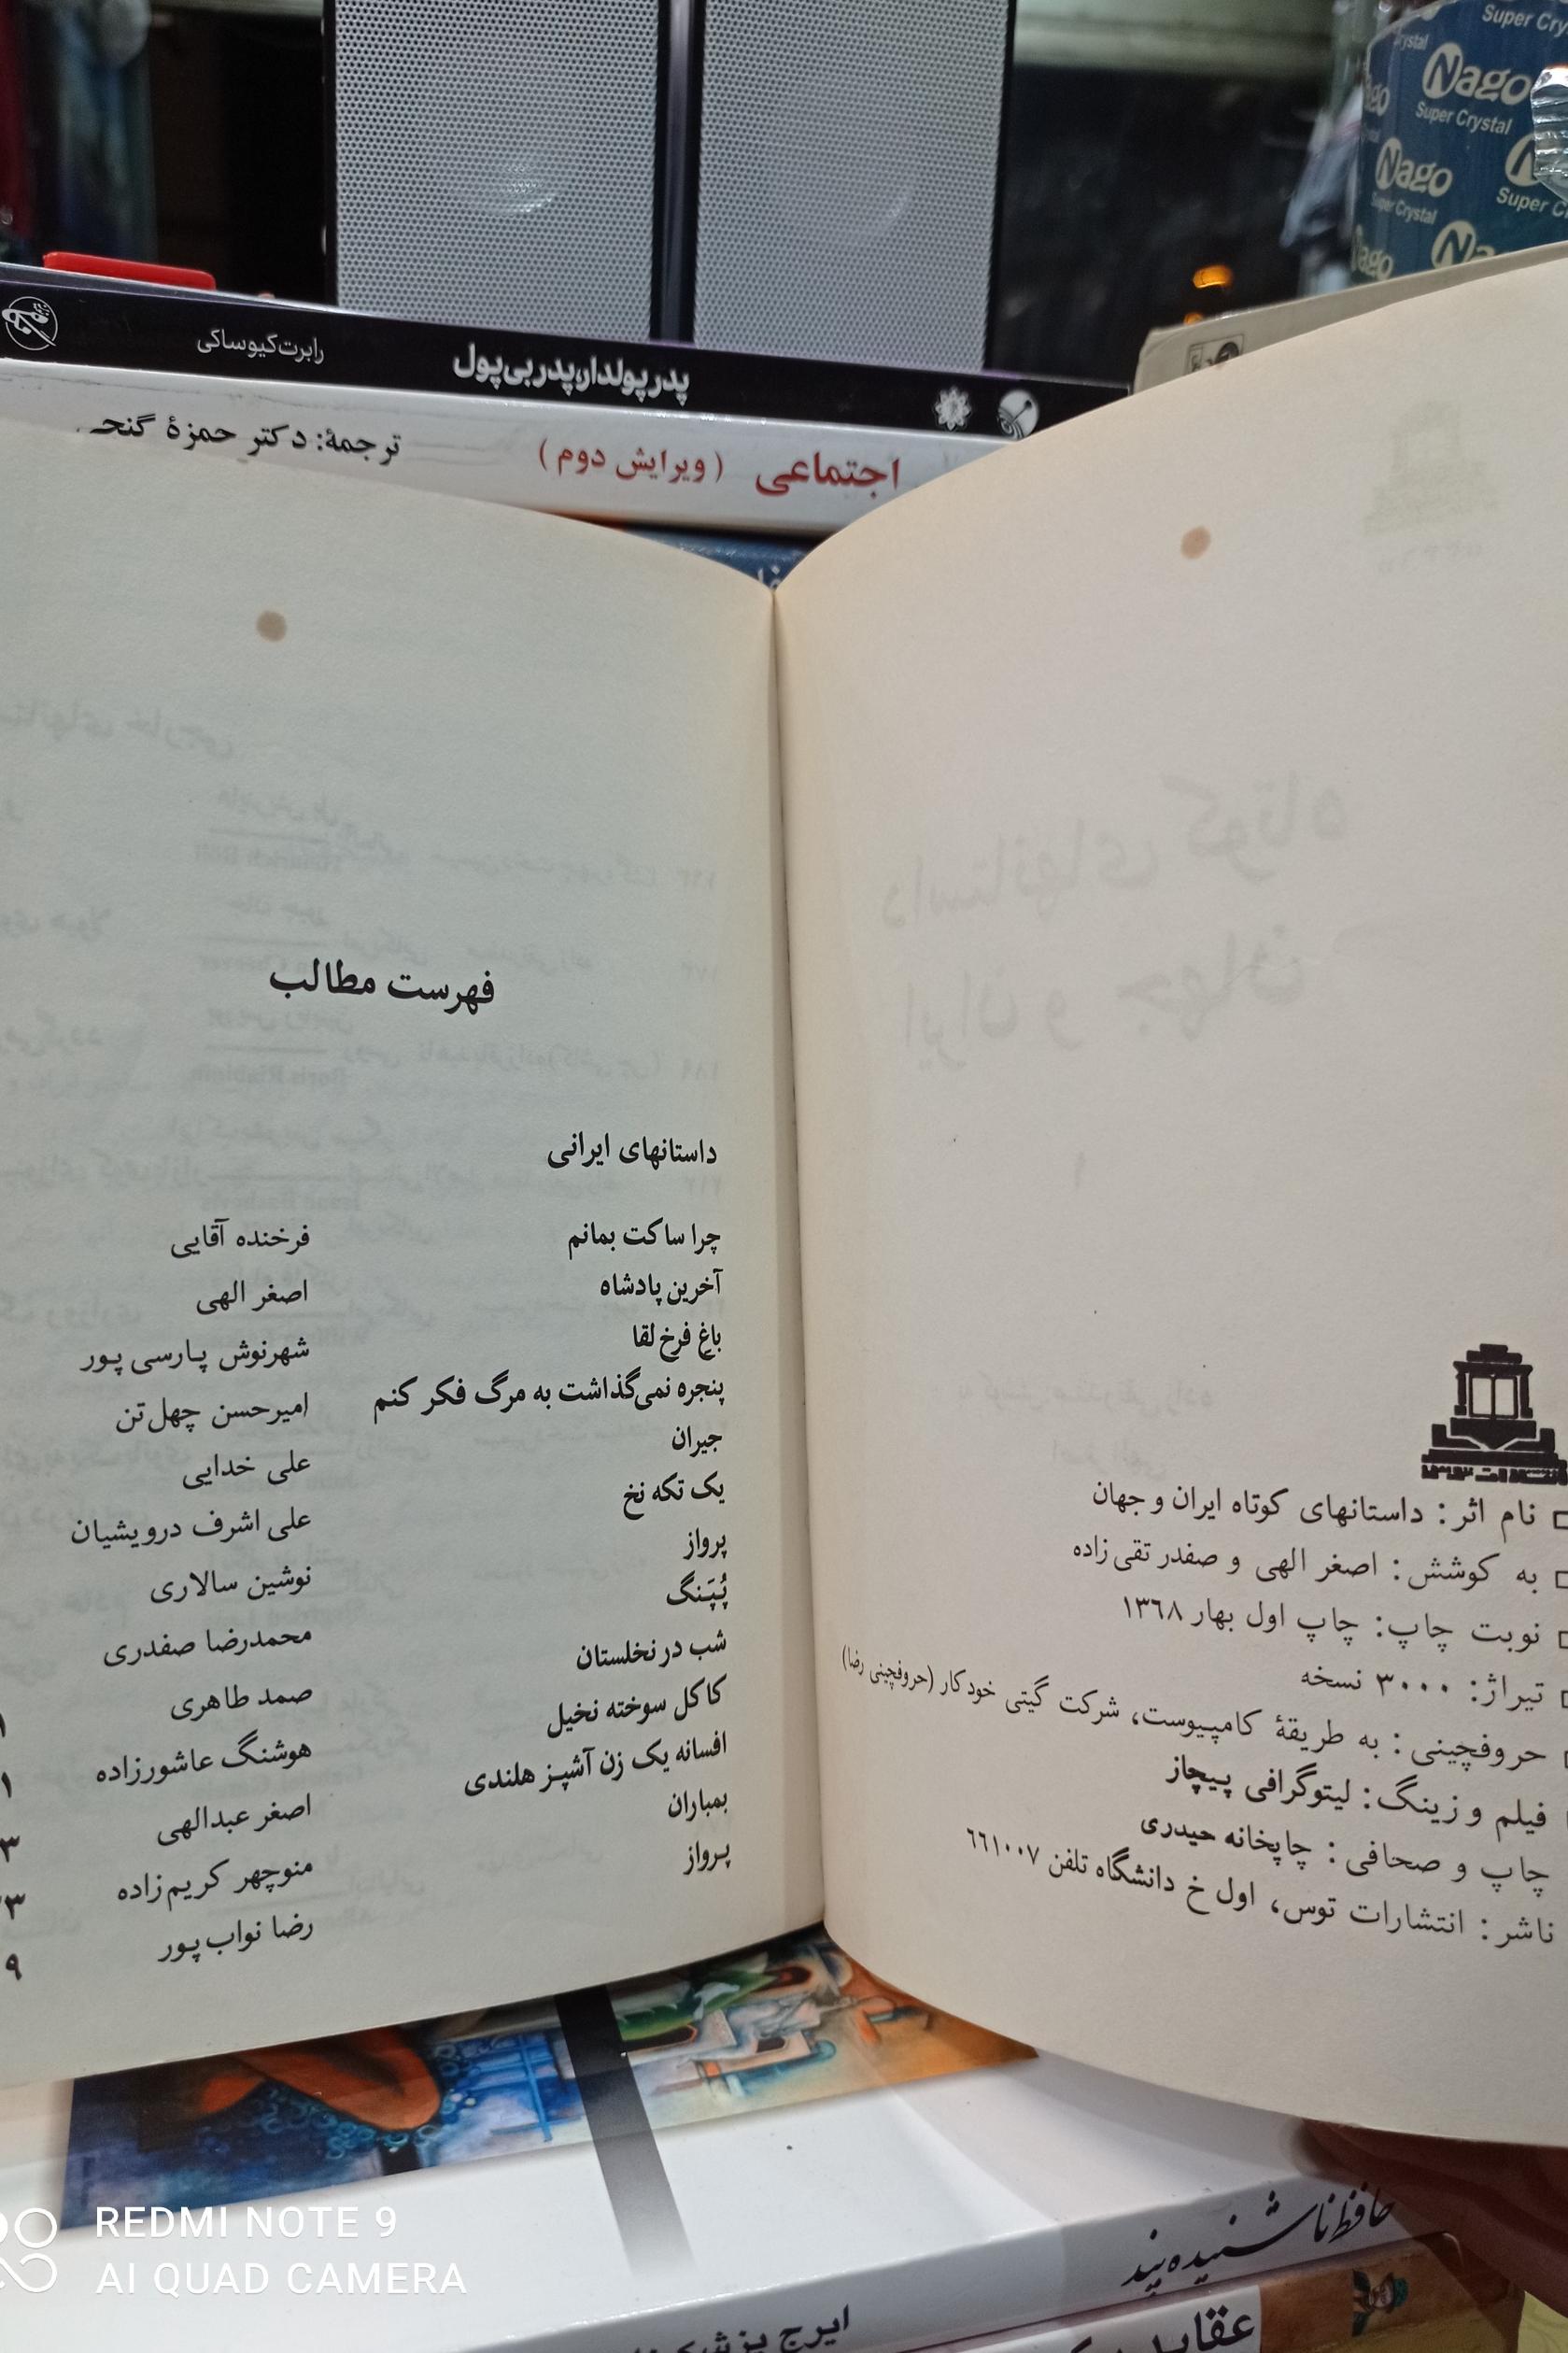 Super Crystal
Nago
Super Crystal
Nago
Super Crystal
Nago
Super Crystal
پدر پولدار، پدر بی‌پول
رابرت کیوساکی
اجتماعی (ویرایش دوم)
ترجمهٔ: دکتر حمزهٔ
نام اثر: داستانهای کوتاه ایران و جهان
به کوشش: اصغر الهی و صفدر تقی‌زاده
نوبت چاپ: چاپ اول بهار ۱۳٦۸
تیراژ: ۳۰۰۰ نسخه
حروفچینی: به طریقهٔ کامپیوست، شرکت گیتی خودکار (حروفچینی رضا)
فیلم و زینگ: لیتوگرافی پیچاز
چاپ و صحافی: چاپخانه حیدری
ناشر: انتشارات توس، اول خ دانشگاه تلفن ٦٦۱۰۰۷
فهرست مطالب
داستانهای ایرانی
چرا ساکت بمانم فرخنده آقایی
آخرین پادشاه اصغر الهی
باغ فرخ لقا شهرنوش پارسی پور
پنجره نمی‌گذاشت به مرگ فکر کنم امیرحسن چهل‌تن
جیران علی خدایی
یک تکه نخ علی اشرف درویشیان
پرواز نوشین سالاری
پُپَنگ محمدرضا صفدری
شب در نخلستان صمد طاهری
کاکل سوخته نخیل هوشنگ عاشورزاده
افسانه یک زن آشپز هلندی اصغر عبدالهی
بمباران منوچهر کریم‌زاده
پرواز رضا نواب‌پور
حافظ ناشنیده پند
ایرج
REDMI NOTE 9
AI QUAD CAMERA